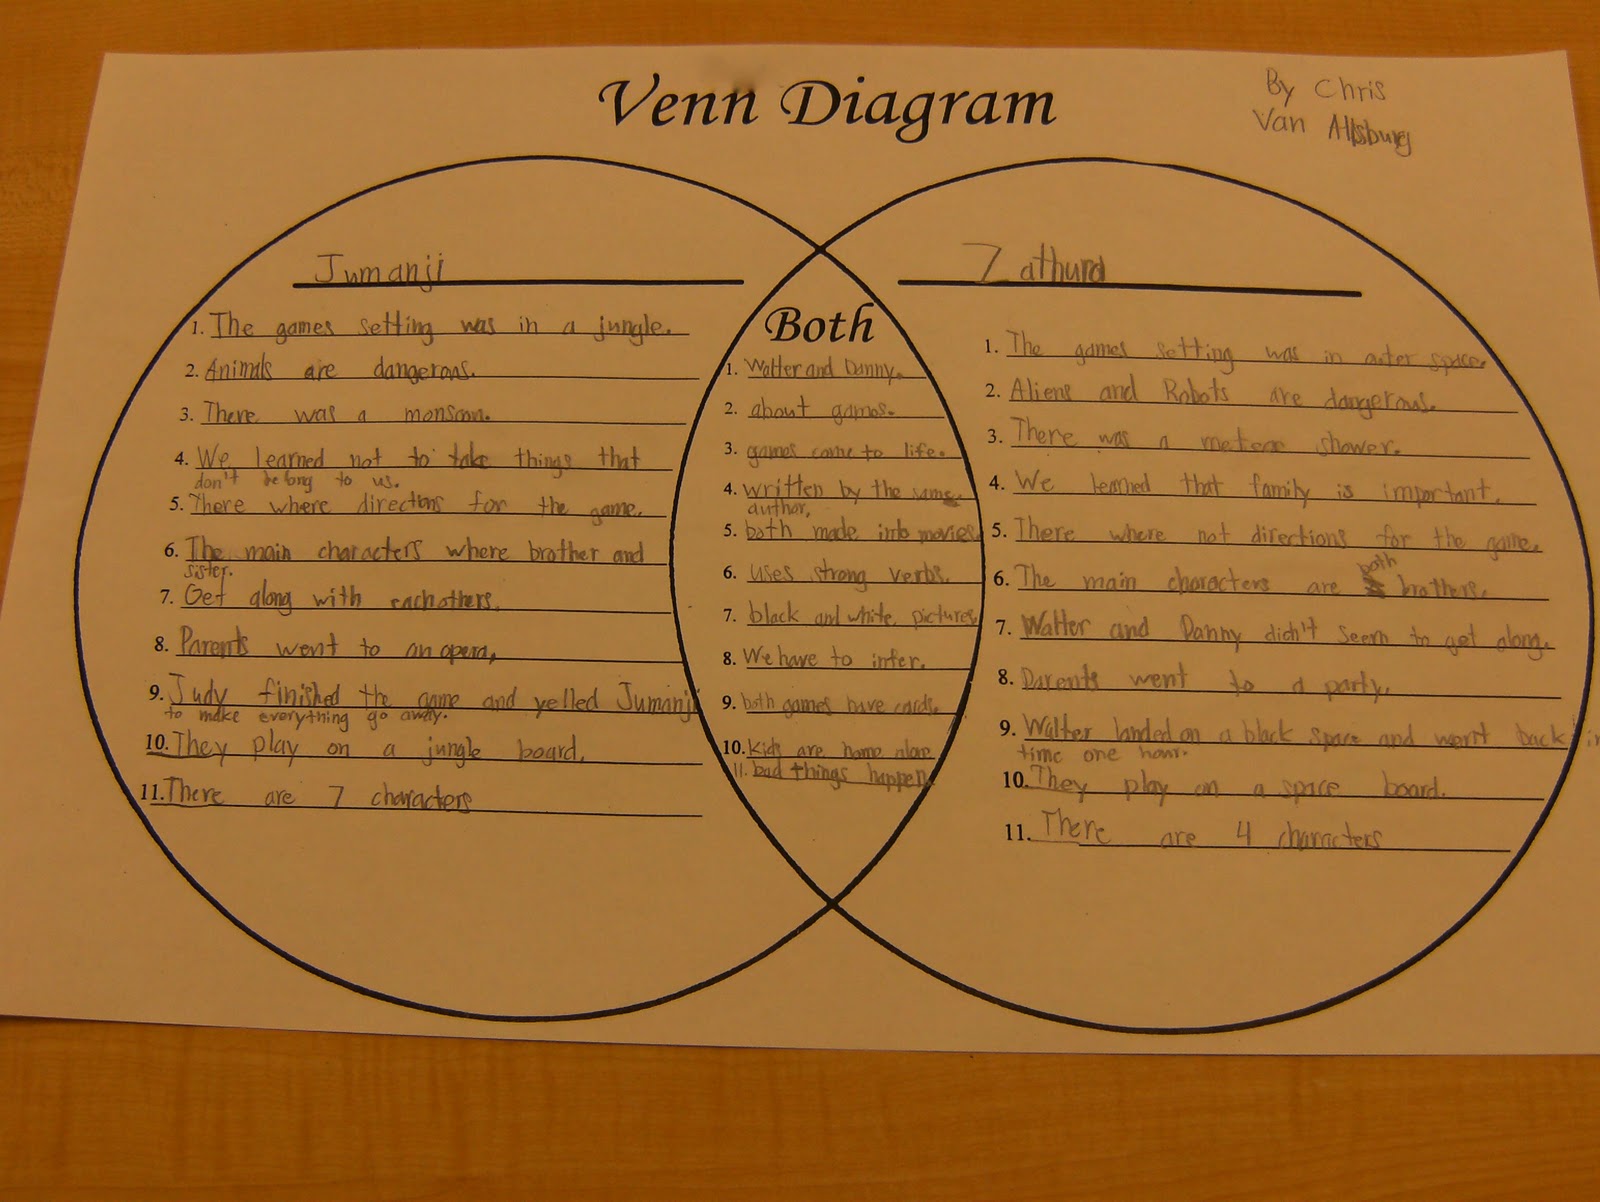 Venn Diagram
By Chris
Van Allsburg
Jumanji
1. The games setting was in a jungle.
2. Animals are dangerous.
3. There was a monsoon.
4. We learned not to take things that
don't belong to us.
5. There where directions for the game.
6. The main characters where brother and
sister.
7. Get along with eachothers.
8. Parents went to an opera.
9. Judy finished the game and yelled Jumanji
to make everything go away.
10. They play on a jungle board.
11. There are 7 characters
Both
1. Walter and Danny.
2. about games.
3. games come to life.
4. written by the same
author,
5. both made into movies.
6. uses strong verbs.
7. black and white pictures.
8. We have to infer.
9. both games have cards.
10. Kids are home alone
11. bad things happen.
Zathura
1. The games setting was in outer space.
2. Aliens and Robots are dangerous.
3. There was a meteor shower.
4. We learned that family is important.
5. There where not directions for the game.
6. The main characters are both brothers.
7. Walter and Danny didn't seem to get along.
8. Parents went to a party.
9. Walter landed on a black space and went back in
time one hour.
10. They play on a space board.
11. There are 4 characters